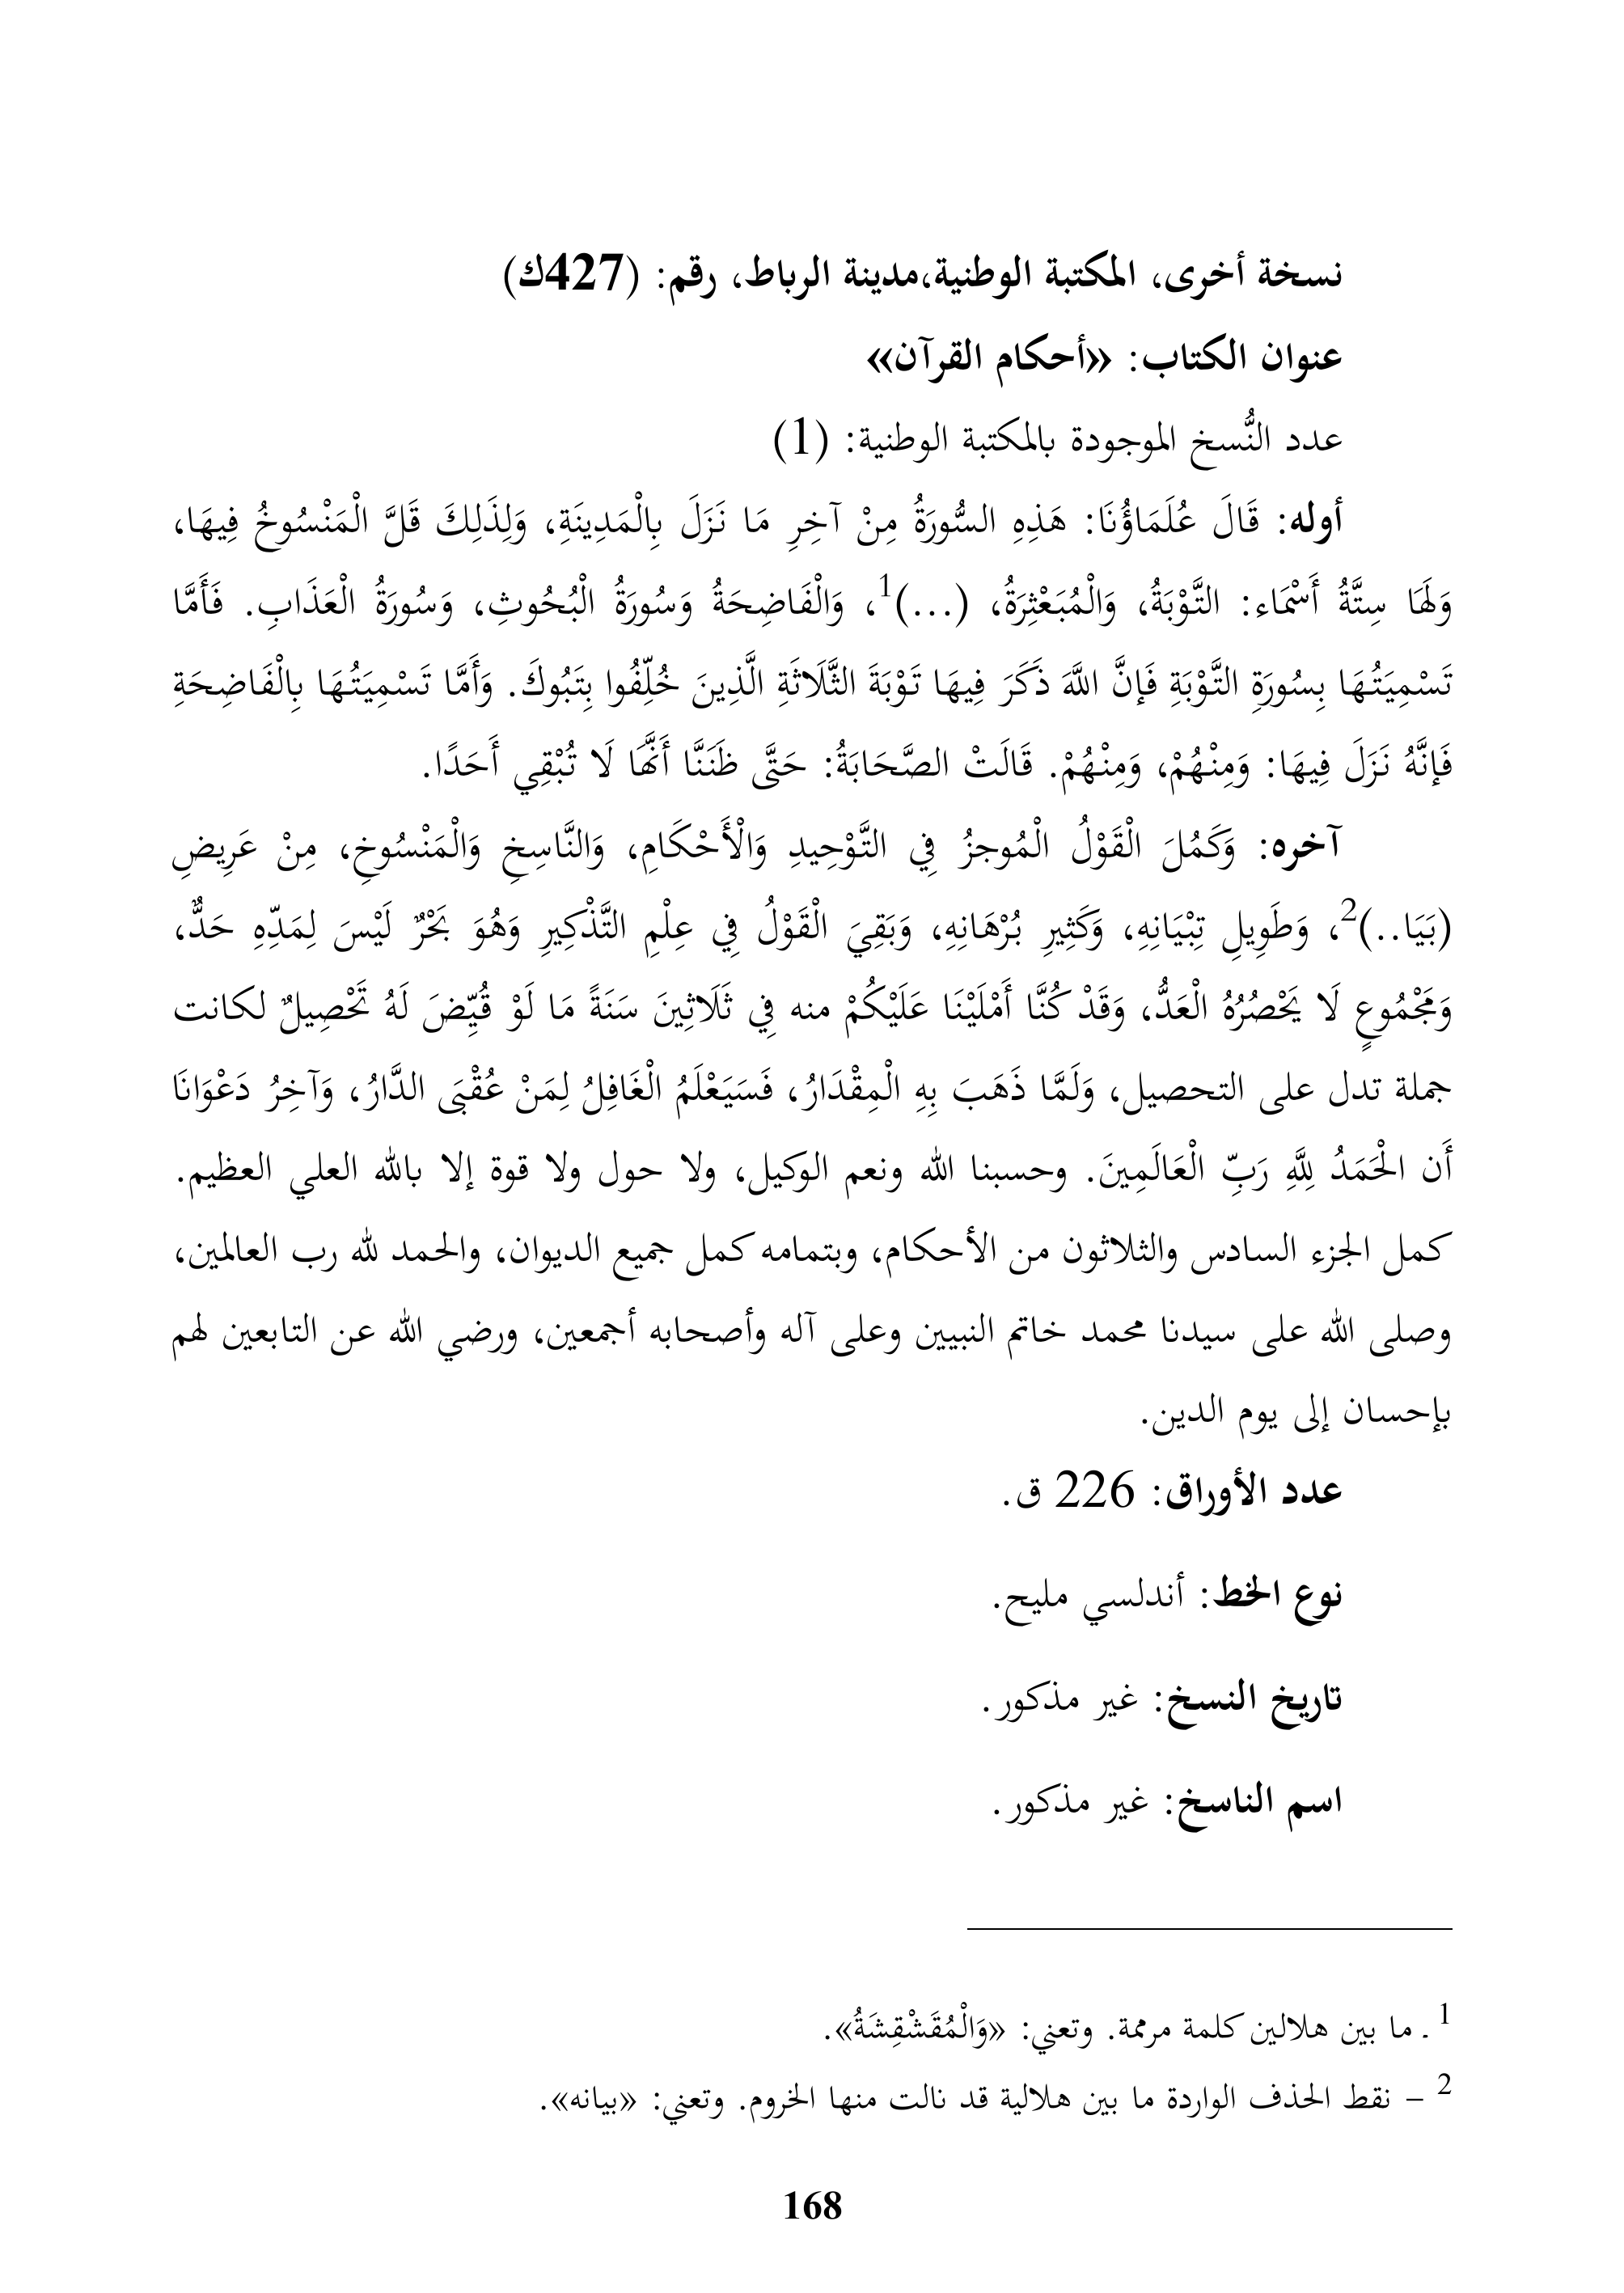 نسخة أخرى، المكتبة الوطنية،مدينة الرباط، رقم: (427ك)
عنوان الكتاب: «أحكام القرآن»
عدد النُّسخ الموجودة بالمكتبة الوطنية: (1)
أوله: قَالَ عُلَمَاؤُنَا: هَذِهِ السُّورَةُ مِنْ آخِرِ مَا نَزَلَ بِالْمَدِينَةِ، وَلِذَلِكَ قَلَّ الْمَنْسُوخُ فِيهَا،
وَلَهَا سِتَّةُ أَسْمَاء: التَّوْبَةُ، وَالْمُبَعْثِرَةُ، (...)1، وَالْفَاضِحَةُ وَسُورَةُ الْبُحُوثِ، وَسُورَةُ الْعَذَابِ. فَأَمَّا
تَسْمِيَتُهَا بِسُورَةِ التَّوْبَةِ فَإنَّ اللَّهَ ذَكَرَ فِيهَا تَوْبَةَ الثَّلَاثَةِ الَّذِينَ خُلِّفُوا بِتَبُوكَ. وَأَمَّا تَسْمِيَتُهَا بِالْفَاضِحَةِ
فَإنَّهُ نَزَلَ فِيهَا: وَمِنْهُمْ، وَمِنْهُمْ. قَالَتْ الصَّحَابَةُ: حَتَّى ظَنَنَّا أَنَّهَا لَا تُبْقِي أَحَدًا.
آخره: وَكَمُلَ الْقَوْلُ الْمُوجزُ فِي التَّوْحِيدِ وَالْأَحْكَامِ، وَالنَّاسِخِ وَالْمَنْسُوخِ، مِنْ عَرِيضِ
(بَيَا..)2، وَطَوِيلِ تِبْيَانِهِ، وَكَثِيرِ بُرْهَانِهِ، وَبَقِيَ الْقَوْلُ فِي عِلْمِ التَّذْكِيرِ وَهُوَ بَحْرٌ لَيْسَ لِمَدِّهِ حَدٌّ،
وَمَجْمُوعٍ لَا يَحْصُرُهُ الْعَدُّ، وَقَدْ كُنَّا أَمْلَيْنَا عَلَيْكُمْ منه فِي ثَلَاثِينَ سَنَةً مَا لَوْ قُيِّضَ لَهُ تَحْصِيلٌ لكانت
جملة تدل على التحصيل، وَلَمَّا ذَهَبَ بِهِ الْمِقْدَارُ، فَسَيَعْلَمُ الْغَافِلُ لِمَنْ عُقْبَى الدَّارُ، وَآخِرُ دَعْوَانَا
أَن الْحَمَدُ لِلَّهِ رَبِّ الْعَالَمِينَ. وحسبنا الله ونعم الوكيل، ولا حول ولا قوة إلا بالله العلي العظيم.
كمل الجزء السادس والثلاثون من الأحكام، وبتمامه كمل جميع الديوان، والحمد لله رب العالمين،
وصلى الله على سيدنا محمد خاتم النبيين وعلى آله وأصحابه أجمعين، ورضي الله عن التابعين لهم
بإحسان إلى يوم الدين.
عدد الأوراق: 226 ق.
نوع الخط: أندلسي مليح.
تاريخ النسخ: غير مذكور.
اسم الناسخ: غير مذكور.
1 ـ ما بين هلالين كلمة مرممة. وتعني: «وَالْمُقَشْقِشَةُ».
2 – نقط الحذف الواردة ما بين هلالية قد نالت منها الخروم. وتعني: «بيانه».
168